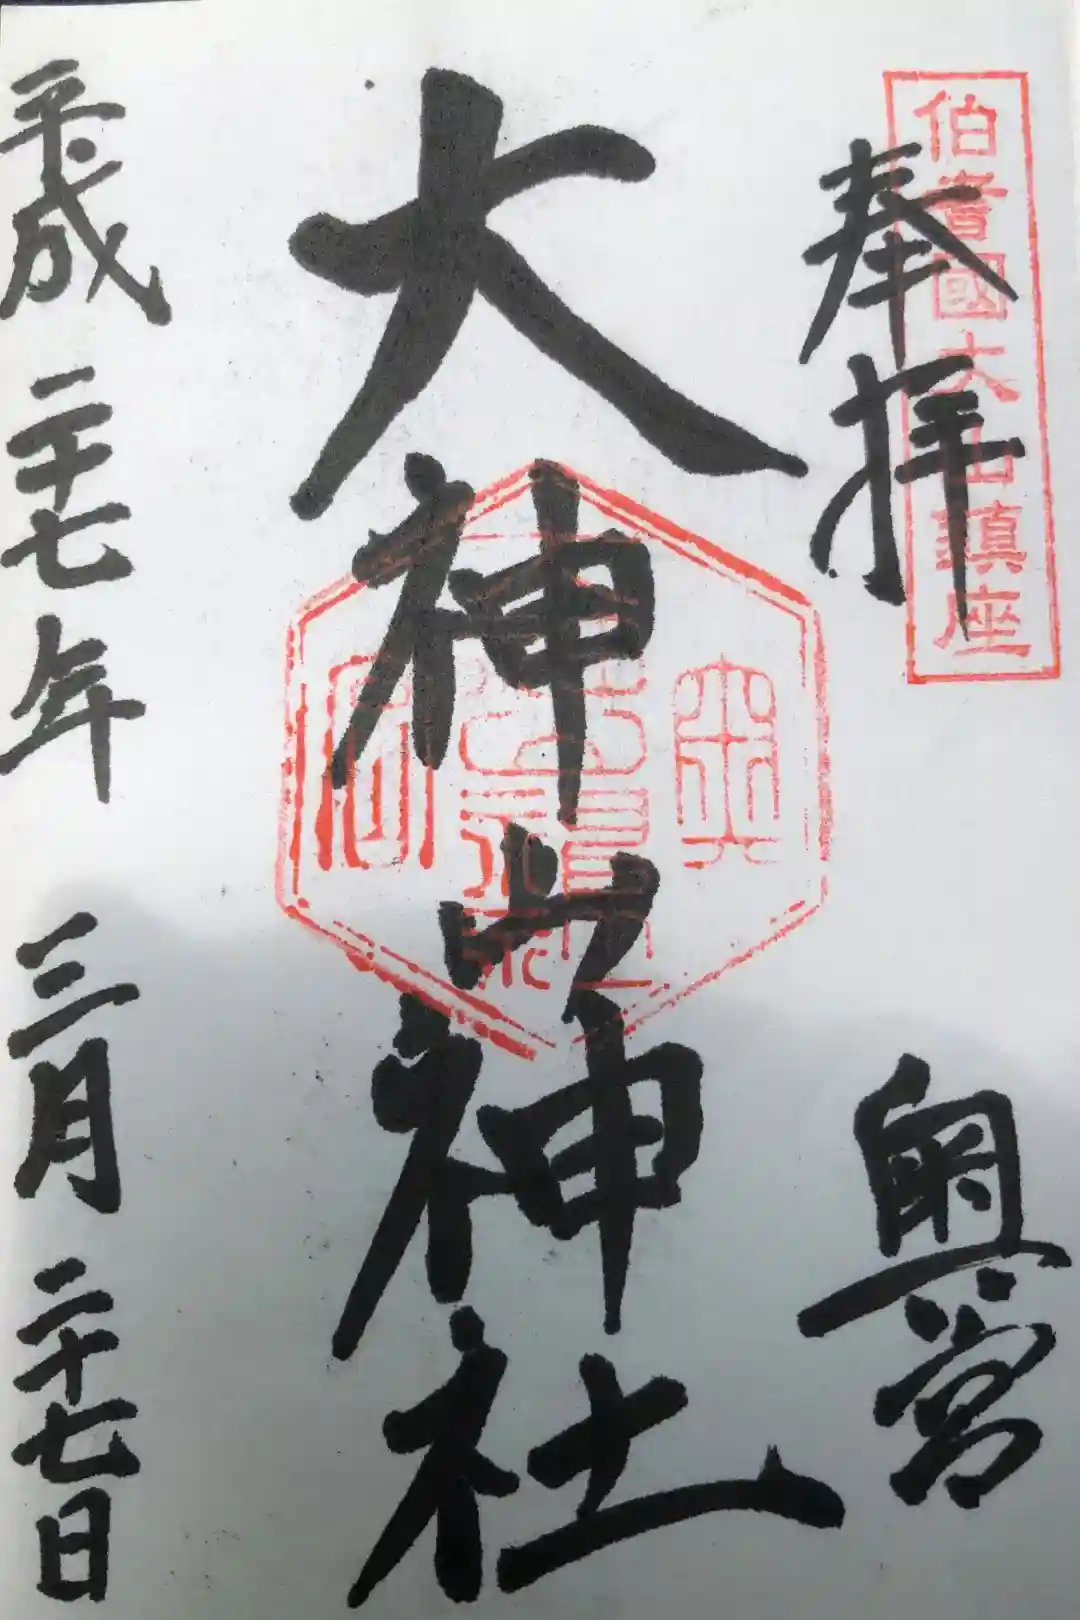 伯耆國大山鎮座
奉拝
奥宮
大神山神社
平成二十七年三月二十七日